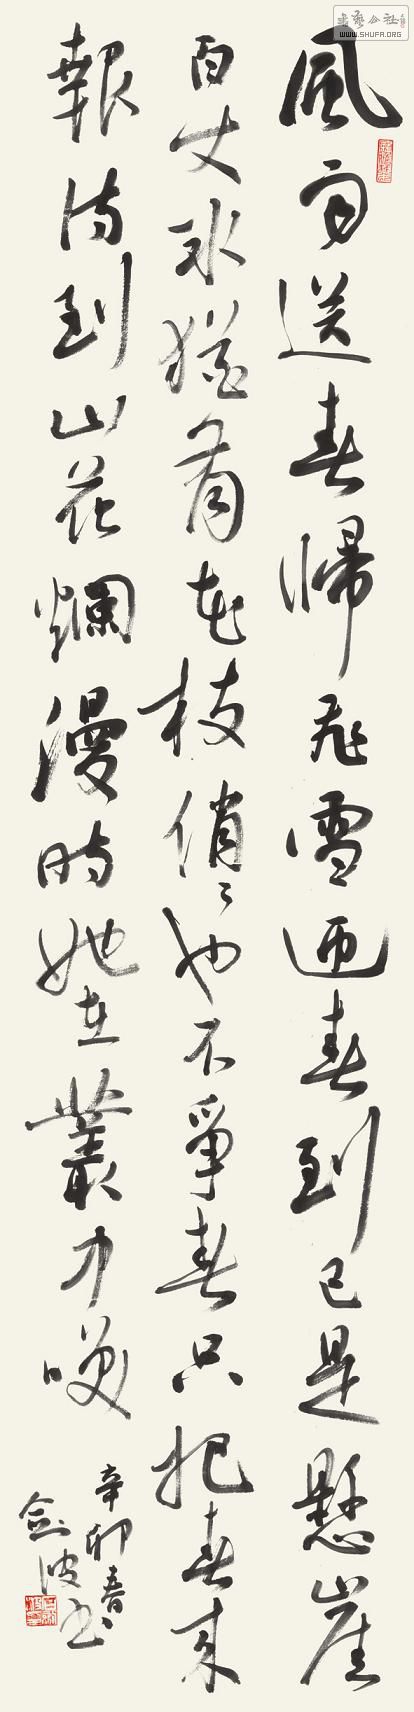 風雨送春歸飛雪迎春到已是懸崖
百丈冰猶有花枝俏〻也不爭春只把春來
報待到山花爛漫時她在叢中咲
辛卯春
剑波书
WWW.SHUFA.ORG